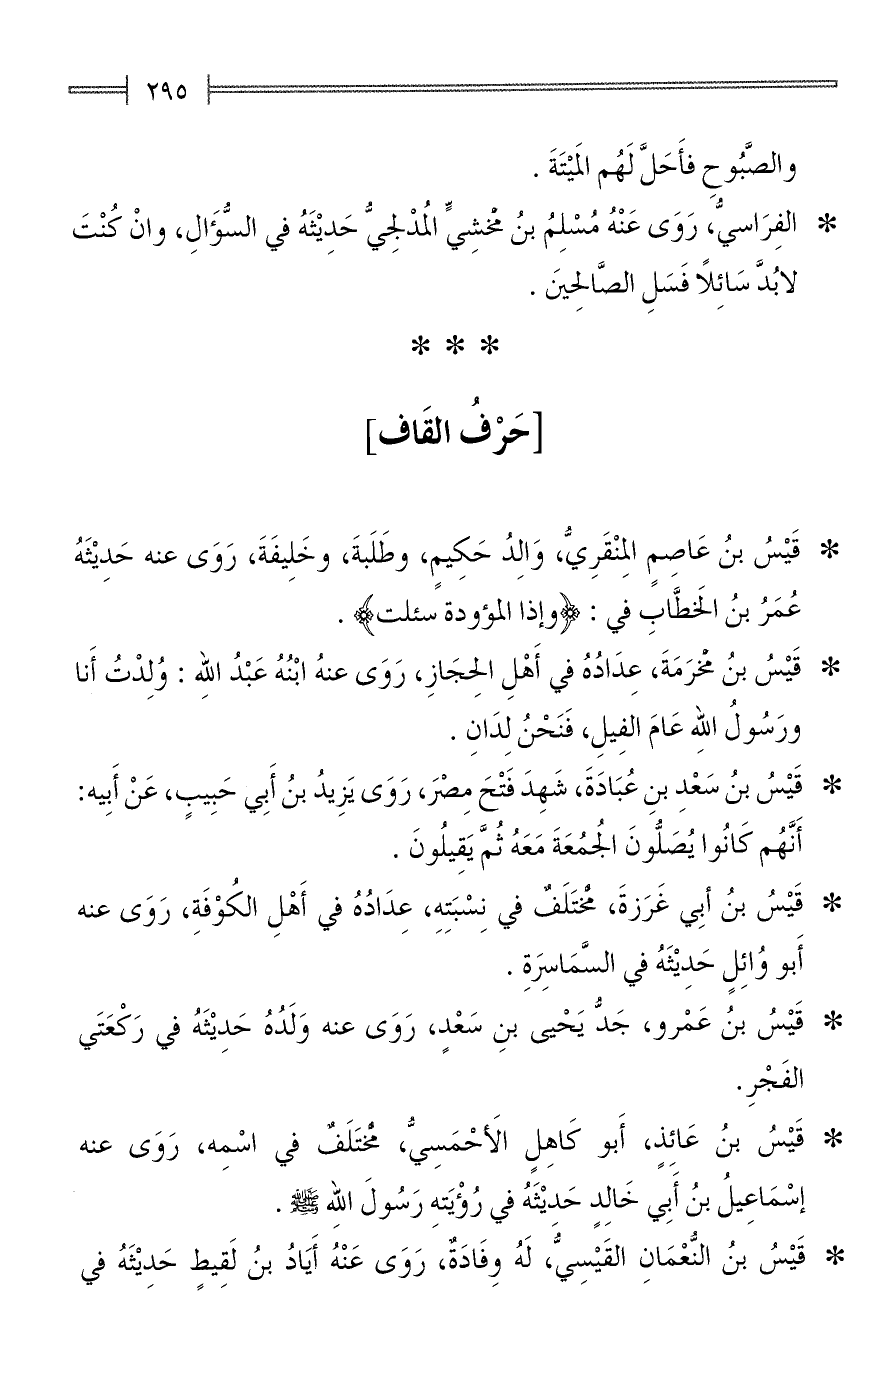 ٢٩٥
والصَّبُوحِ فأَحَلَّ لَهُم المَيْتَةَ .
* الفِرَاسيُّ، رَوَى عَنْهُ مُسْلِمُ بنُ مَخْشِيٍّ المُدْلجيُّ حَدِيْثَهُ في السُّؤَالِ، وانْ كُنْتَ
لابُدَّ سَائِلاً فَسَلِ الصَّالِحِينَ .
* * *
[حَرْفُ القَاف]
* قَيْسُ بنُ عَاصِمٍ المِنْقَرِيُّ، وَالِدُ حَكِيمٍ، وطَلَبةَ، وخَلِيفَةَ، رَوَى عنه حَدِيْثَهُ
عُمَرُ بنُ الخَطَّابِ في : ﴿وإذا المؤودة سئلت﴾ .
* قَيْسُ بنُ مَخْرَمَةَ، عِدَادُهُ في أَهْلِ الحِجَازِ، رَوَى عنهُ ابْنُهُ عَبْدُ اللهِ : وُلِدْتُ أَنا
ورَسُولُ اللهِ عَامَ الفِيلِ، فَنَحْنُ لِدَانِ .
* قَيْسُ بنُ سَعْدِ بنِ عُبَادَةَ، شَهِدَ فَتْحَ مِصْرَ، رَوَى يَزِيدُ بنُ أَبي حَبِيبٍ، عَنْ أَبيه:
أَنَّهُم كَانُوا يُصَلُّونَ الجُمعَةَ مَعَهُ ثُمَّ يَقِيلُونَ .
* قَيْسُ بنُ أبي غَرَزةَ، مُخْتَلَفٌ في نِسْبَتِهِ، عِدَادُهُ في أَهْلِ الكُوْفَةِ، رَوَى عنه
أَبو وُائِلٍ حَدِيْثَهُ في السَّمَاسِرَةِ .
* قَيْسُ بنُ عَمْرو، جَدُّ يَحْيى بنِ سَعْدٍ، رَوَى عنه وَلَدُهُ حَدِيْثَهُ في رَكْعَتَي
الفَجْرِ .
* قَيْسُ بنُ عَائِذٍ، أَبو كَاهِلٍ الأَحْمَسِيُّ، مُخْتَلَفٌ في اسْمِه، رَوَى عنه
إسْمَاعِيلُ بنُ أَبي خَالِدٍ حَدِيْثَهُ في رُؤْيَتِه رَسُولَ اللهِ ﷺ .
* قَيْسُ بنُ النُّعْمَانِ القَيْسِيُّ، لَهُ وِفَادَةٌ، رَوَى عَنْهُ أَيَادُ بنُ لَقِيطٍ حَدِيْثَهُ في